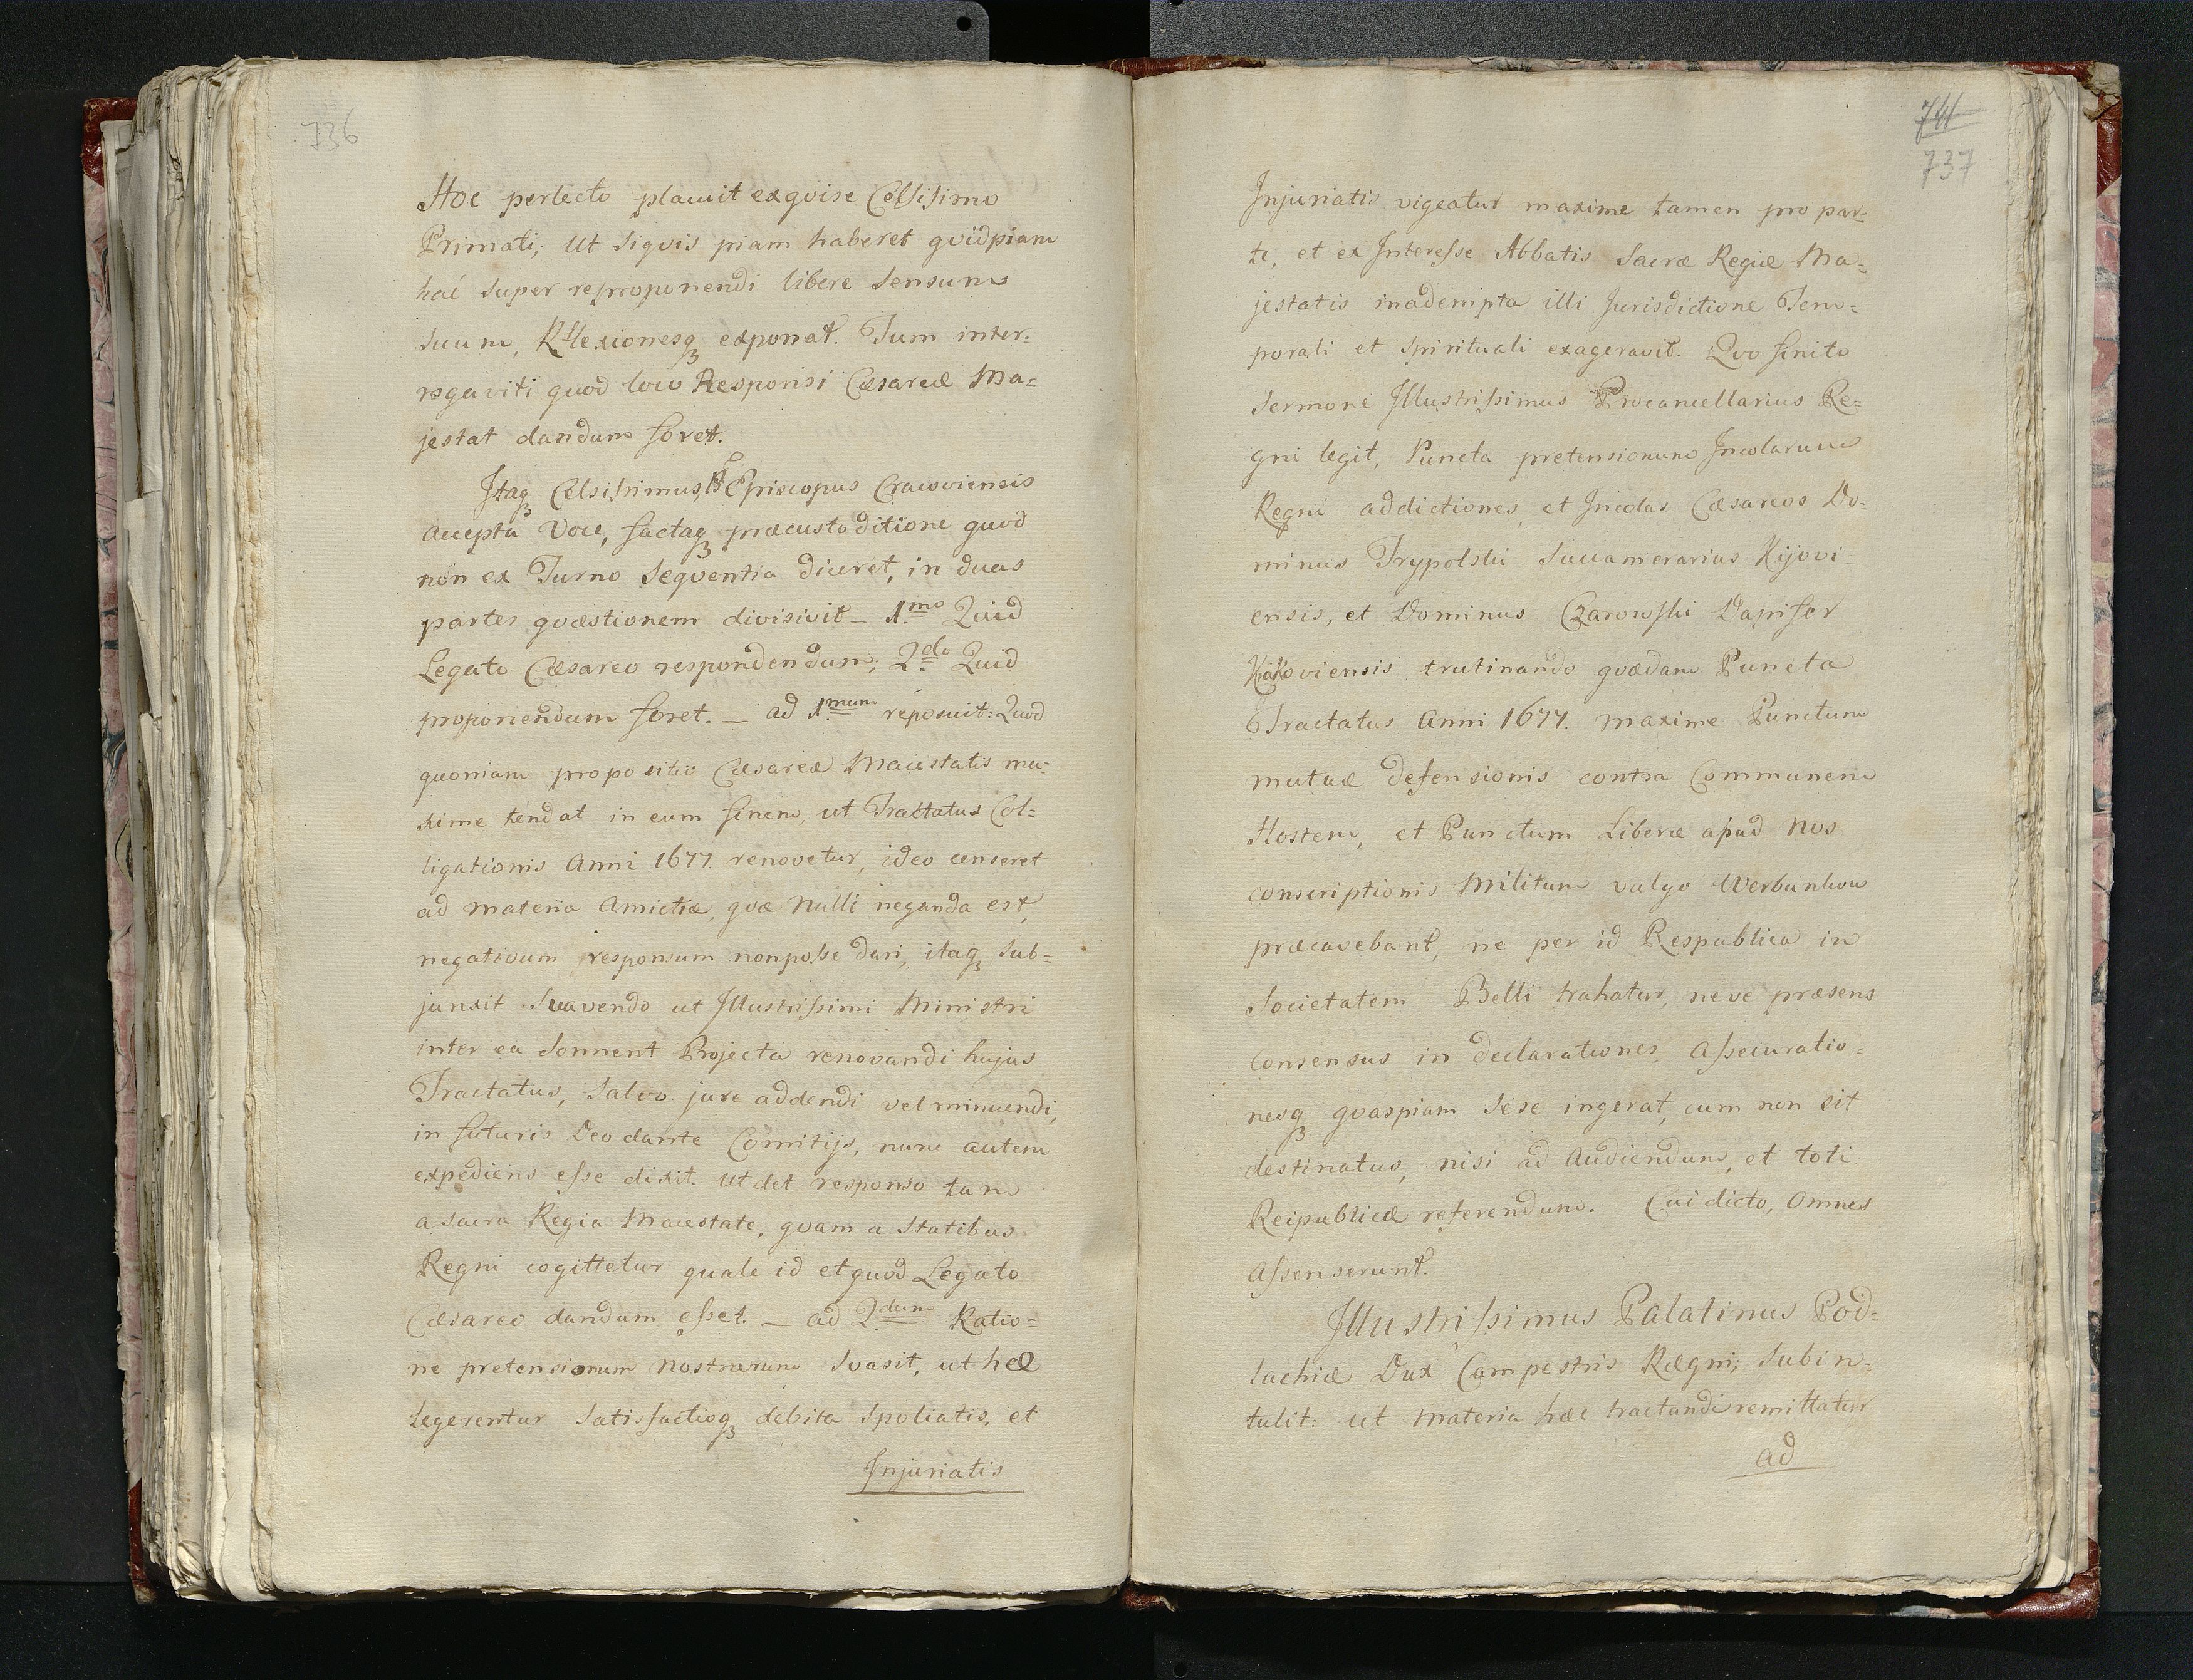 736
Hoc perlecto placuit exqvise Celsissimo
Primati; Ut siqvis piam haberet qvidpiam
hac super reproponendi libere Sensum
suum, Rflexionesq3 exponat. Tum inter=
rogaviti quod loco Responsi Cæsareæ Ma=
jestat dandum foret.
Itaq3 Celsissimus, Episcopus Cracoviensis
accepta Voce, factaq3 præcustoditione quod
non ex Turno seqventia diceret, in duas
partes qvæstionem divisivit_ 1mo Quid
Legato Cæsareo respondendum; 2do Quid
proponendum foret._ ad 1mum reposuit: Quod
quoniam propositio Cæsareæ Maiestatis ma=
xime tendat in eum finem, ut Tractatus Col=
ligationis Anni 1677. renovetur, ideo censeret
ad materia Amictiæ, qvæ Nulli neganda est,
negativum responsum nonposse dari, itaq3 sub=
junxit Suavendo ut Illustrissimi Ministri
inter ea Sonnent Projecta renovandi hujus
Tractatus, Salvo jure addendi vel minuendi,
in futuris Deo dante Comitijs, nunc autem
expediens esse dixit. Ut det responso tam
a sacra Regia Maiestate, qvam a Statibus
Regni cogittetur quale id et quod Legato
Cæsareo dandum esset._ ad 2dum Ratio=
ne pretensionum Nostrarum Svasit, ut hæ
legerentur Satisfactioq3 debita Spoliatis, et
Injuriatis
741
737
Injuriatis vigeatur maxime tamen pro par=
te, et ex Interesse Abbatis Sacræ Regiæ Ma=
jestatis inadempta illi Jurisdictione Tem=
porali et Spirituali exageravit. Qvo finito
Sermone Illustrissimus Procancellarius Re=
gni legit, Puncta pretensionum Incolarum
Regni addictiones, et Incolas Cæsareos Do=
minus Trypolski Succamerarius Kijovi=
ensis, et Dominus Czarowski Dapifer
viensis trutinando qvædam Puncta
Tractatus Anni 1677. maxime Punctum
mutuæ defensionis contra Communem
Hostem, et Punctum Liberæ apud Nos
conscriptionis Militum vulgo Werbunkow
præcavebant, ne per id Respublica in
Societatem Belli trahatur, neve præsens
consensus in declarationes, Asseiuratio=
nesq3 qvaspiam sese ingerat, cum non sit
destinatus, nisi ad Audiendum, et toti
Reipublicæ referendum. Cui dicto, Omnes
Assenserunt.
Illustrissimus Palatinus Pod=
lachiæ Dux Campestris Rægni; Subin=
tulit: ut Materia hæc tractandi remittatur
ad